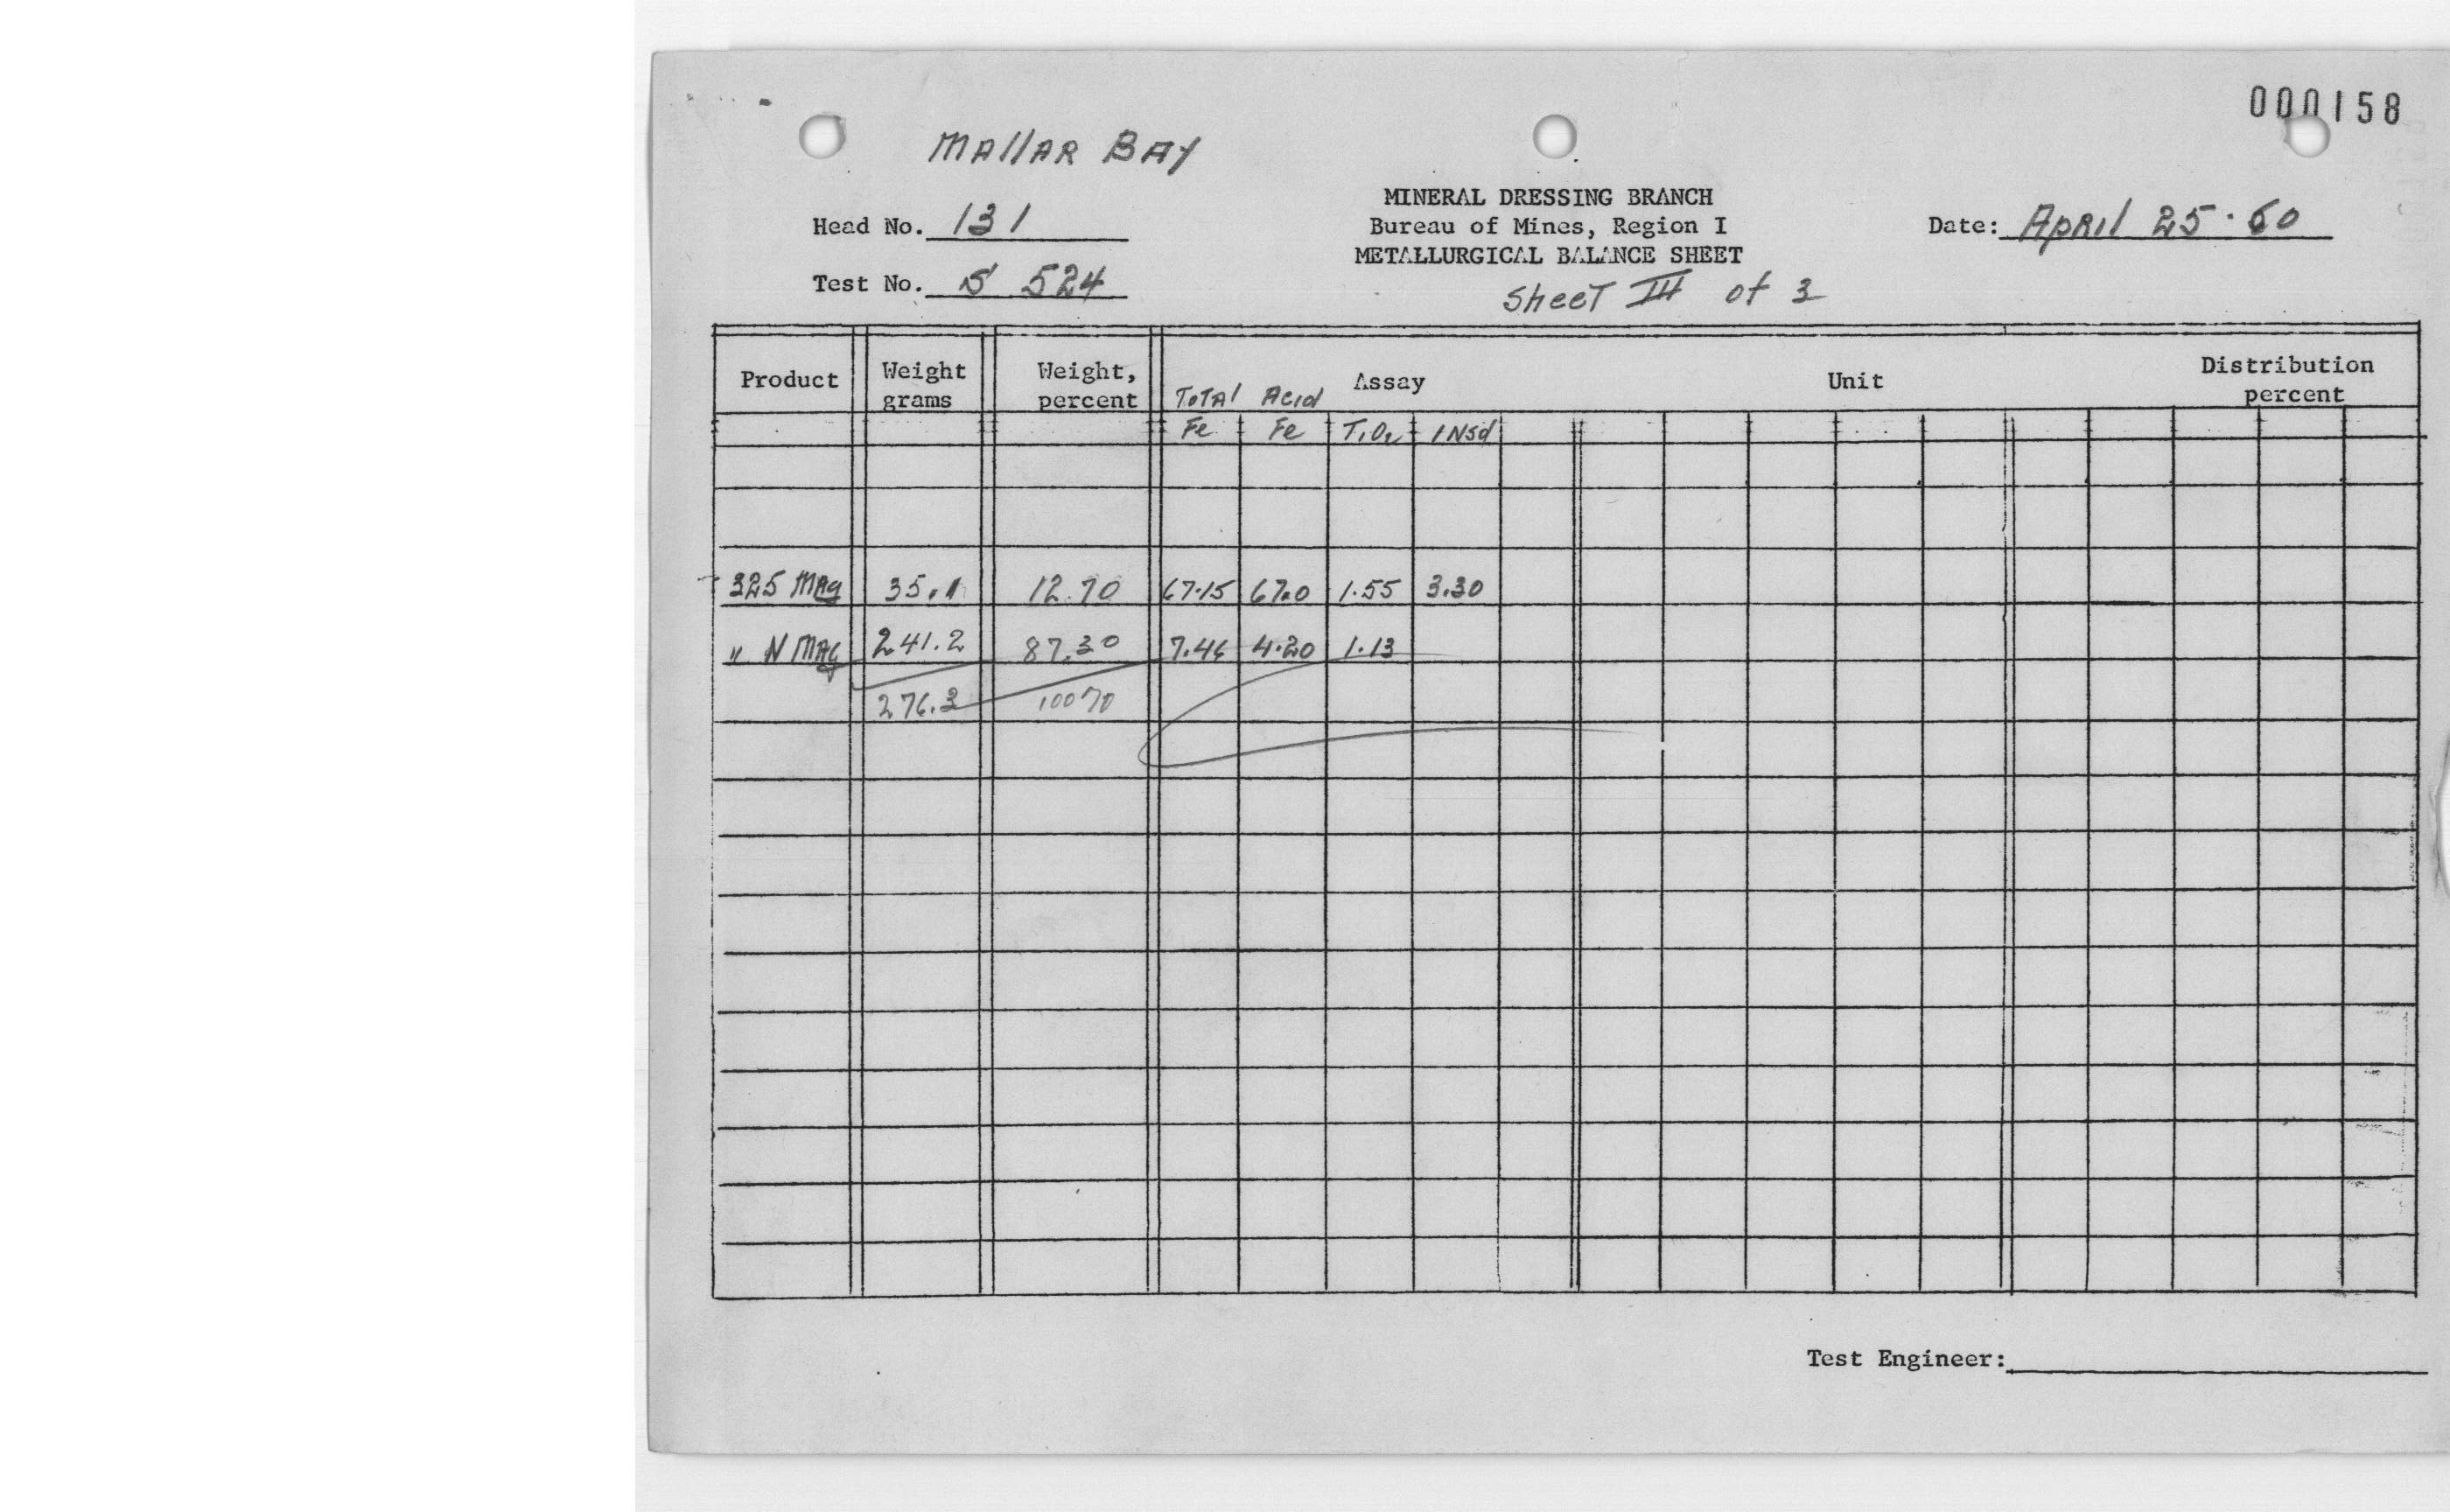 000158
MAllAR BAY
MINERAL DRESSING BRANCH
Head No. 131
Bureau of Mines, Region I
Date: APRIl 25·60
METALLURGICAL BALANCE SHEET
Test No. S 524
SheeT III of 3
Product
Weight grams
Weight, percent
Assay
Unit
Distribution percent
ToTAl Fe
Acid Fe
TiO2
INSol
-325 MAg 35.1 12.70 67.15 67.0 1.55 3.30
" N MAG 241.2 87.30 7.46 4.20 1.13
276.3 100%
Test Engineer: